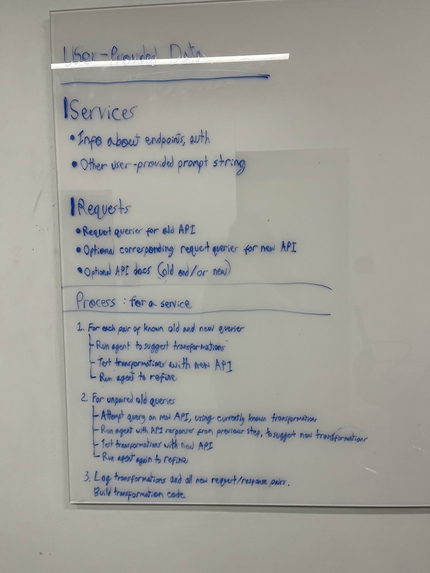 User-Provided Data
Services
• Info about endpoints, auth
• Other user-provided prompt string
Requests
• Request querier for old API
• Optional corresponding request querier for new API
• Optional API docs (old and/or new)
Process: for a service
1. For each pair of known old and new querier
- Run agent to suggest transformations
- Test transformations with new API
- Run agent to refine
2. For unpaired old queries
- Attempt query on new API, using currently known transformations
- Run agent with API responses from previous step, to suggest new transformations
- Test transformations with new API
- Run agent again to refine
3. Log transformations and all new request/response pairs.
Build transformation code